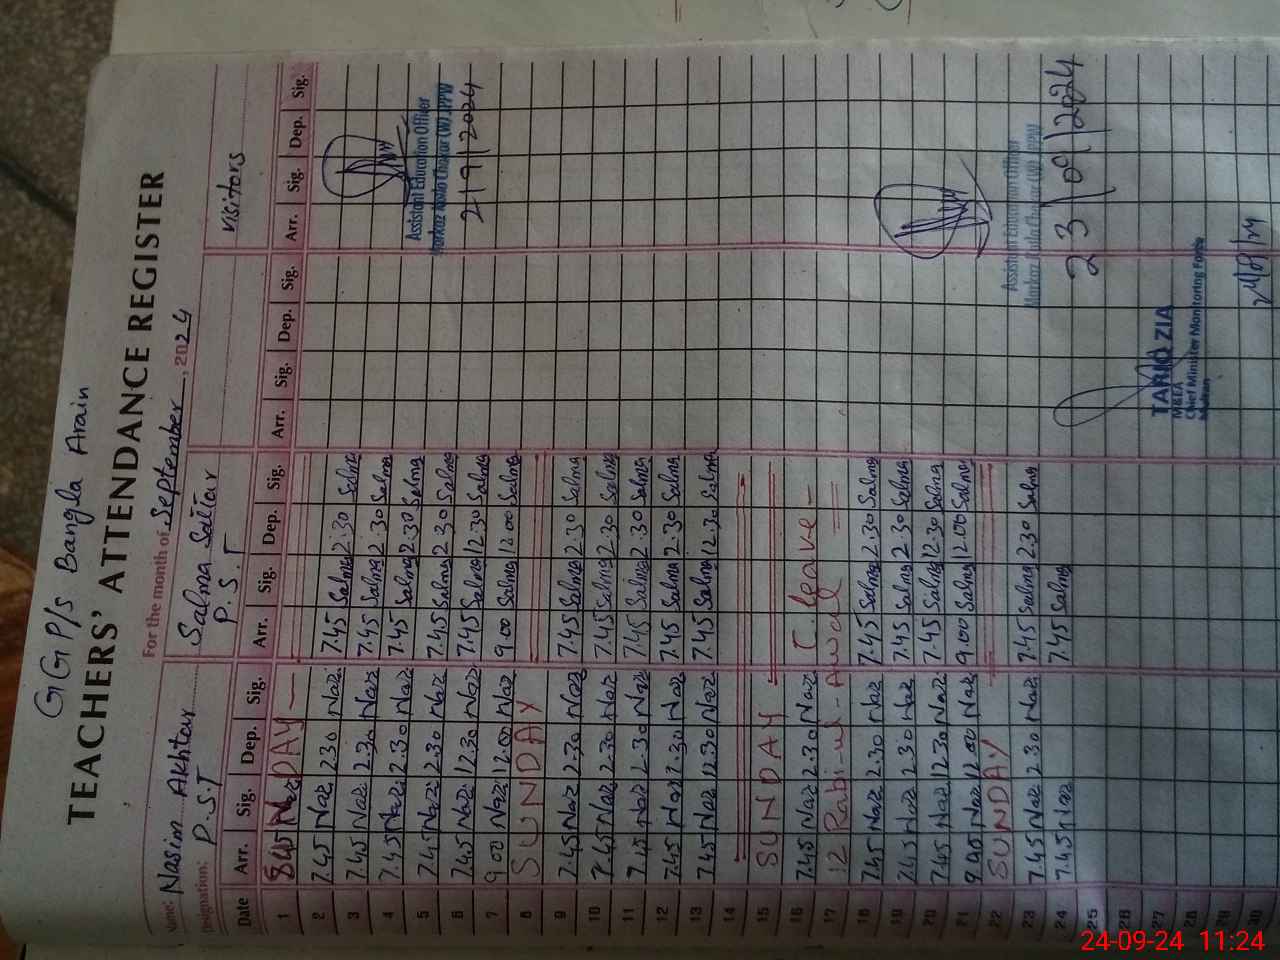 GGP/s Bangla Arain
TEACHERS' ATTENDANCE REGISTER
For the month of September, 2024
Name: Nasim Akhtar Salma Sattar Visitors
Designation: P.S.T P.S.T
Date Arr. Sig. Dep. Sig. Arr. Sig. Dep. Sig. Arr. Sig. Dep. Sig. Arr. Sig. Dep. Sig.
1 DAY
2 7.45 Naz 2.30 Naz 7.45 Salma 2.30 Salma
3 7.45 Naz 2.30 Naz 7.45 Salma 2.30 Salma
4 7.45 Naz 2.30 Naz 7.45 Salma 2.30 Salma
5 7.45 Naz 2.30 Naz 7.45 Salma 2.30 Salma
6 7.45 Naz 12.30 Naz 7.45 Salma 12.30 Salma
7 9.00 Naz 12.00 Naz 9.00 Salma 12.00 Salma
8 SUNDAY
9 7.45 Naz 2.30 Naz 7.45 Salma 2.30 Salma
10 7.45 Naz 2.30 Naz 7.45 Salma 2.30 Salma
11 7.45 Naz 2.30 Naz 7.45 Salma 2.30 Salma
12 7.45 Naz 2.30 Naz 7.45 Salma 2.30 Salma
13 7.45 Naz 12.30 Naz 7.45 Salma 12.30 Salma
14
15 SUNDAY
16 7.45 Naz 2.30 Naz C. leave
17 12 Rabi-ul-Awal
18 7.45 Naz 2.30 Naz 7.45 Salma 2.30 Salma
19 7.45 Naz 2.30 Naz 7.45 Salma 2.30 Salma
20 7.45 Naz 12.30 Naz 7.45 Salma 12.30 Salma
21 9.00 Naz 12.00 Naz 9.00 Salma 12.00 Salma
22 SUNDAY
23 7.45 Naz 2.30 Naz 7.45 Salma 2.30 Salma
24 7.45 Naz 7.45 Salma
25
26
27
28
29
30
Assistant Education Officer
2/9/2024
Assistant Education Officer
23/09/2024
TARIQ ZIA
M&EA
Chief Minister Monitoring Force
Multan
24-09-24 11:24